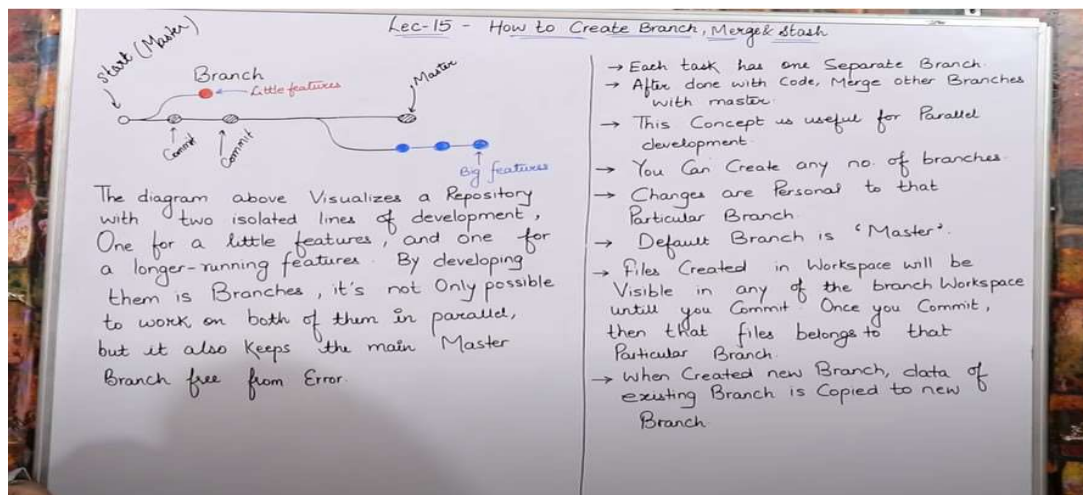 Lec-15 - How to Create Branch, Merge & Stash
Start (Master)
Branch
Little features
Master
Commit
Commit
Big features
The diagram above Visualizes a Repository
with two isolated lines of development,
One for a little features, and one for
a longer-running features. By developing
them is Branches, it's not Only possible
to work on both of them in parallel,
but it also Keeps the main Master
Branch free from Error.
→ Each task has one Separate Branch.
→ After done with Code, Merge other Branches
with master.
→ This Concept is useful for Parallel
development.
→ You Can Create any no. of branches.
→ Changes are Personal to that
Particular Branch.
→ Default Branch is 'Master'.
→ Files Created in Workspace will be
Visible in any of the branch Workspace
untill you Commit. Once you Commit,
then that files belongs to that
Particular Branch.
→ When Created new Branch, data of
existing Branch is Copied to new
Branch